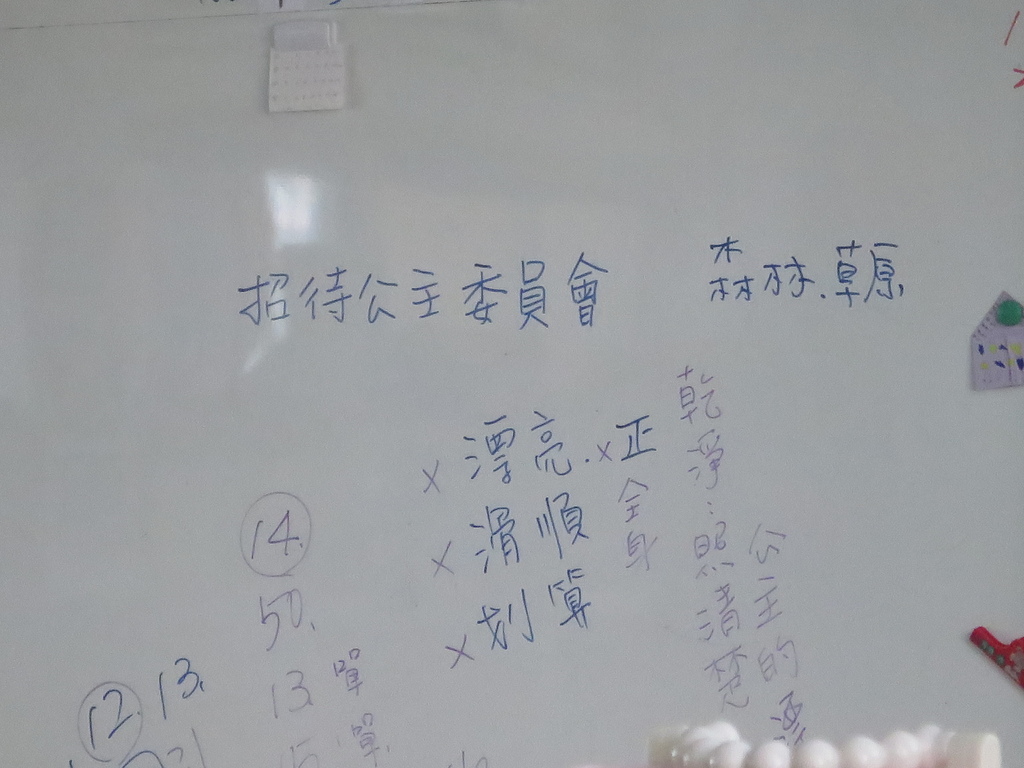 招待公主委員會
森林.草原
x 漂亮.x正
全身
x 滑順
x 划算
乾淨:照清楚
公主的
14.
50.
13.單
單
12 13.